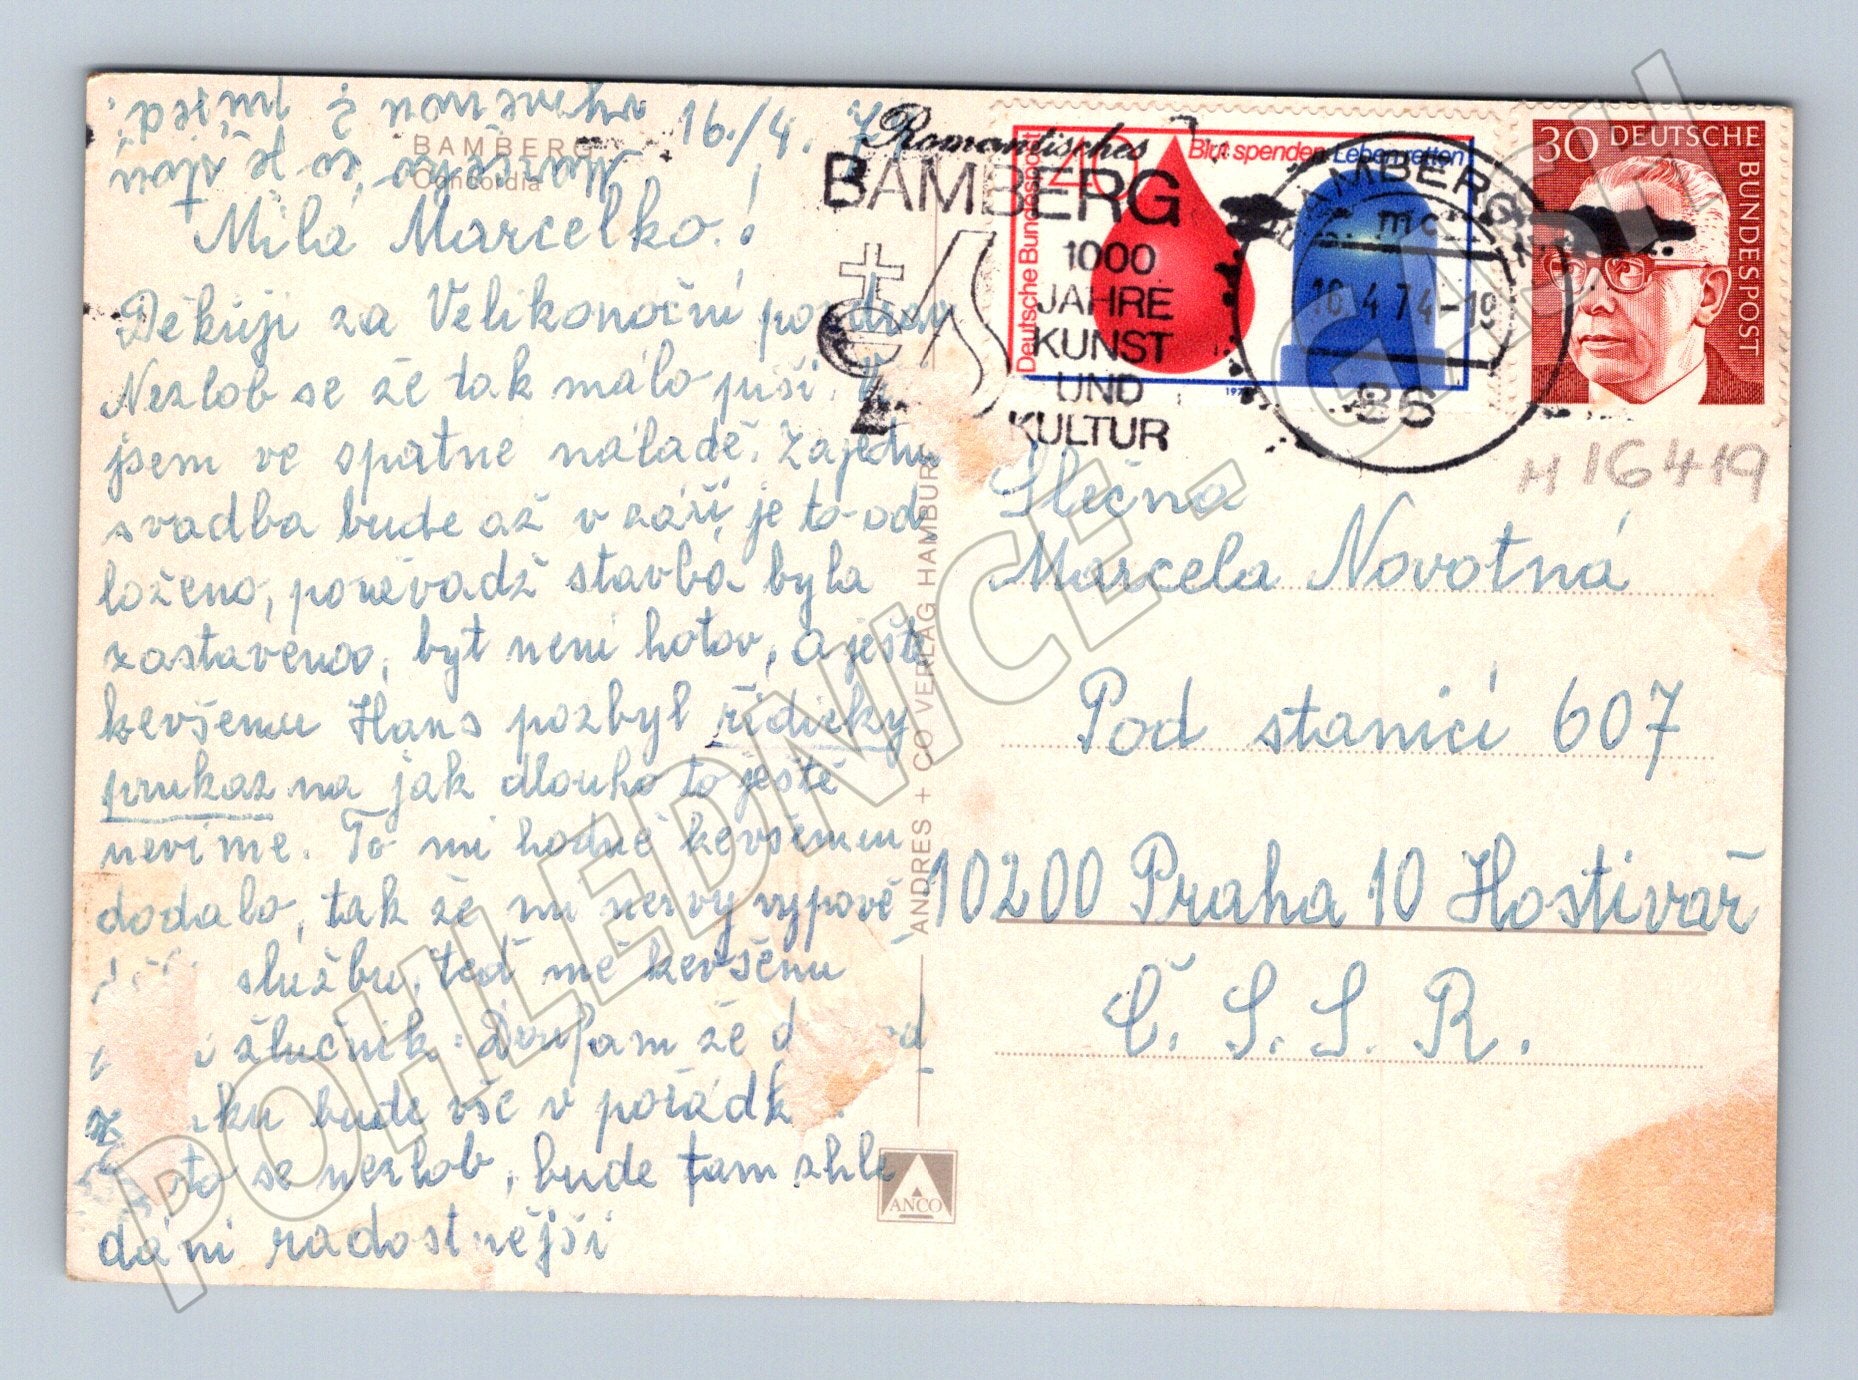 16./4.
BAMBERG
Concordia
Milá Marcelko!
Děkuji za Velikonoční
Nezlob se že tak málo píši.
jsem ve spatne náladě. Zajedno
svadba bude až v září je to od
loženo, poněvadž stavba byla
zastaveno, byt neni hotov, a ješt
kevšemu Hans pozbyl řidicky
prukaz na jak dlouho to ještě
nevíme. To mi hodně kevšemu
dodalo, tak že mi nervy vypově
službu, teď mě kevšemu
žlučnik. Doufam že
bude vše v pořádk
se nezlob, bude tam shle
dání radostnější
Romantisches
BAMBERG
1000
JAHRE
KUNST
UND
KULTUR
40
Deutsche Bundespost
Blut spenden Leben retten
BAMBERG
16.4.74-19
86
30 DEUTSCHE
BUNDESPOST
H 16419
Slečna
Marcela Novotná
Pod stanicí 607
10200 Praha 10 Hostivař
Č. S. S. R.
ANDRES + CO VERLAG HAMBURG
ANCO
POHLEDNICE - CASH